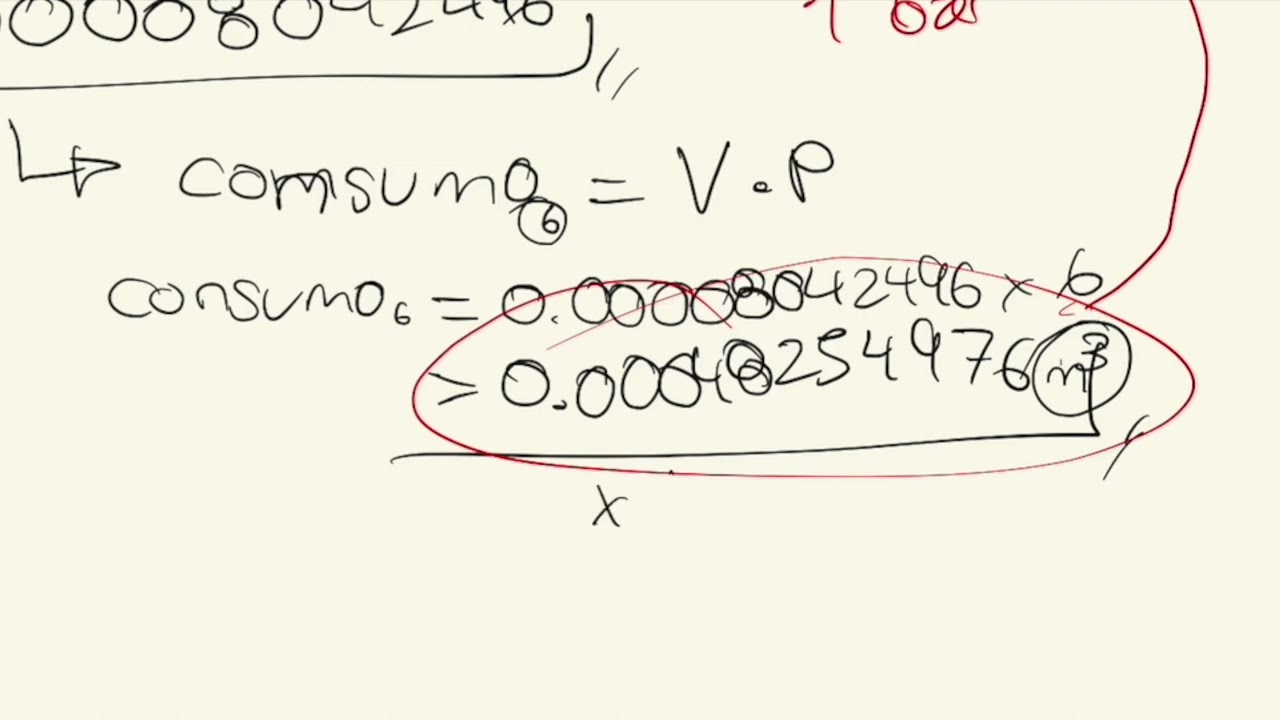 0008042496 //
1 bar
↳ comsumo₆ = V.P
consumo₆ = 0.00008042496 x 6
> 0.00048254976 m³ /
x